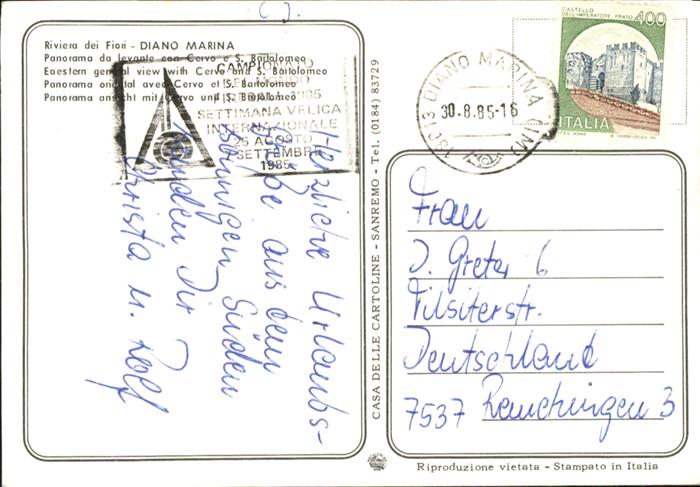 Riviera dei Fiori - DIANO MARINA
Panorama da levante con Cervo e S. Bartolomeo
Eoestern general view with Cervo and S. Bartolomeo
Panorama oriental avec Cervo et S. Bartolomeo
Panorama ansicht mit Cervo und S. Bartolomeo
CAMPIONATO
1985
SETTIMANA VELICA
INTERNAZIONALE
26 AGOSTO
SETTEMBRE
1985
Herzliche Urlaubs-
grüße aus dem
sonnigen Süden
senden Dir
Christa u. Rolf
CASA DELLE CARTOLINE - SANREMO - Tel. (0184) 83729
18013 DIANO MARINA (IM)
30.8.85-16
CASTELLO
DELL'IMPERATORE · PRATO
400
ITALIA
Frau
J. Greter 6
Tilsiterstr.
Deutschland
7537 Remchingen 3
Riproduzione vietata - Stampato in Italia